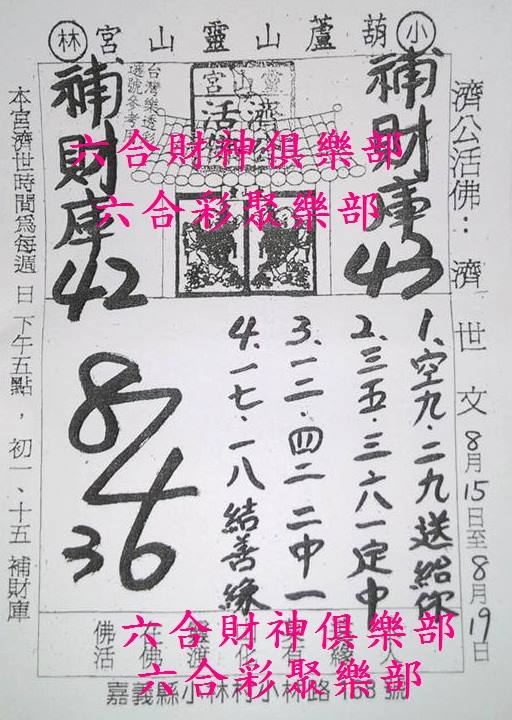 小 葫蘆山靈山宮 林
濟公活佛：濟世文
8月15日至8月19日
補財庫
43
補財庫
42
台灣樂透彩
選號參考
靈山宮
濟公活佛
六合財神俱樂部
六合彩聚樂部
1、空九·二九送給你
2、三五·三六八一定中
3、一二·四二二中一
4、一七·一八結善緣
87
4
36
本宮濟世時間為每週日下午五點，初一、十五補財庫
六合財神俱樂部
六合彩聚樂部